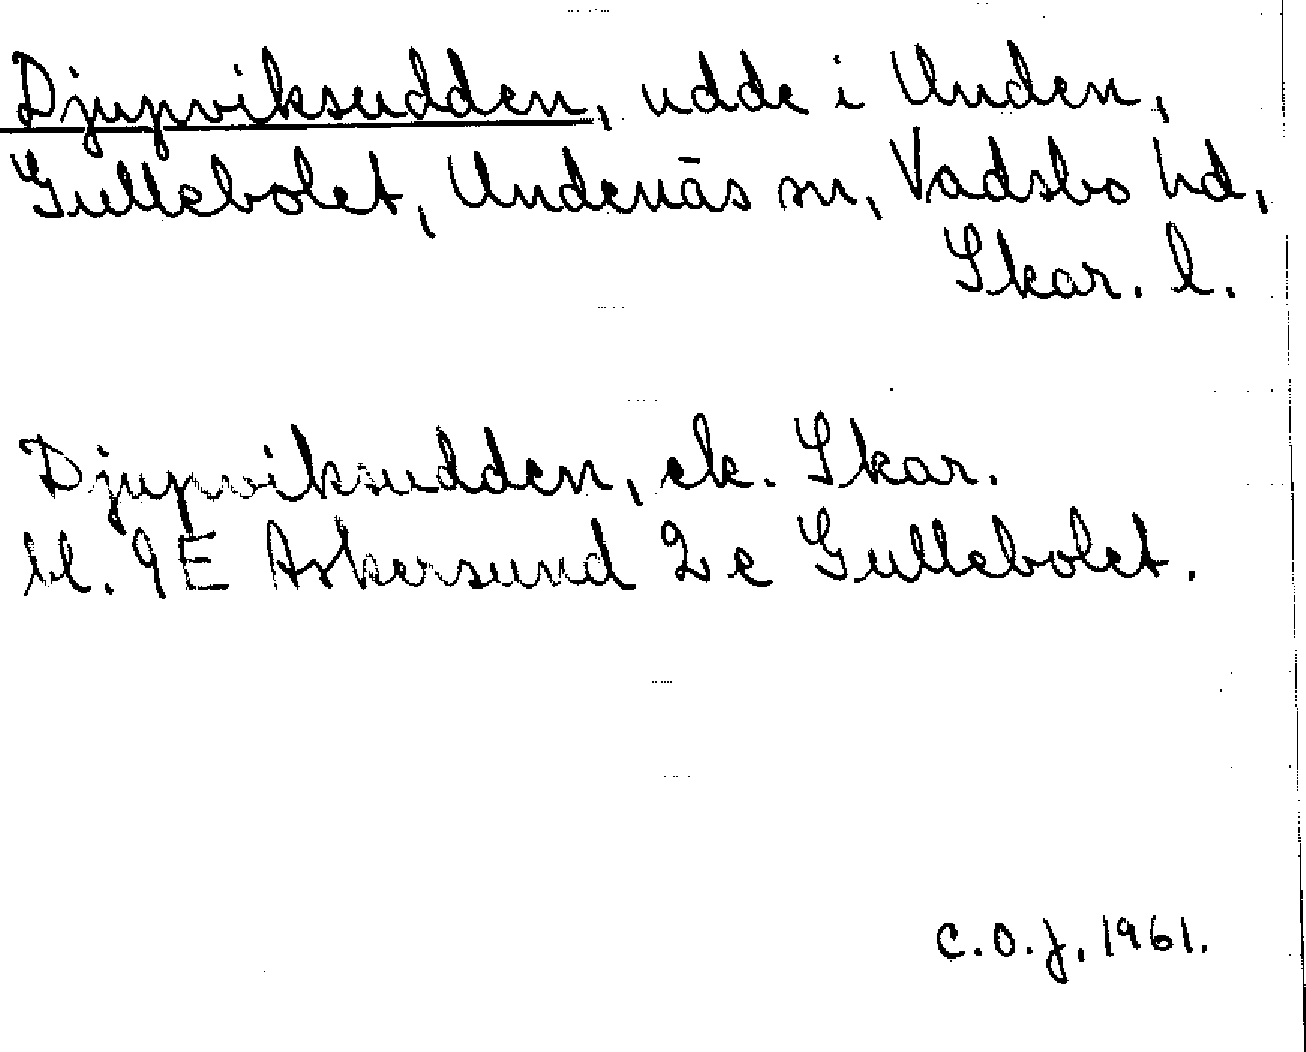 Djupviksudden, udde i Unden,
Gullebolet, Undenäs sn, Vadsbo hd,
Skar. l.
Djupviksudden, ek. Skar.
bl. 9E Askersund 2c Gullebolet.
C.O.J. 1961.